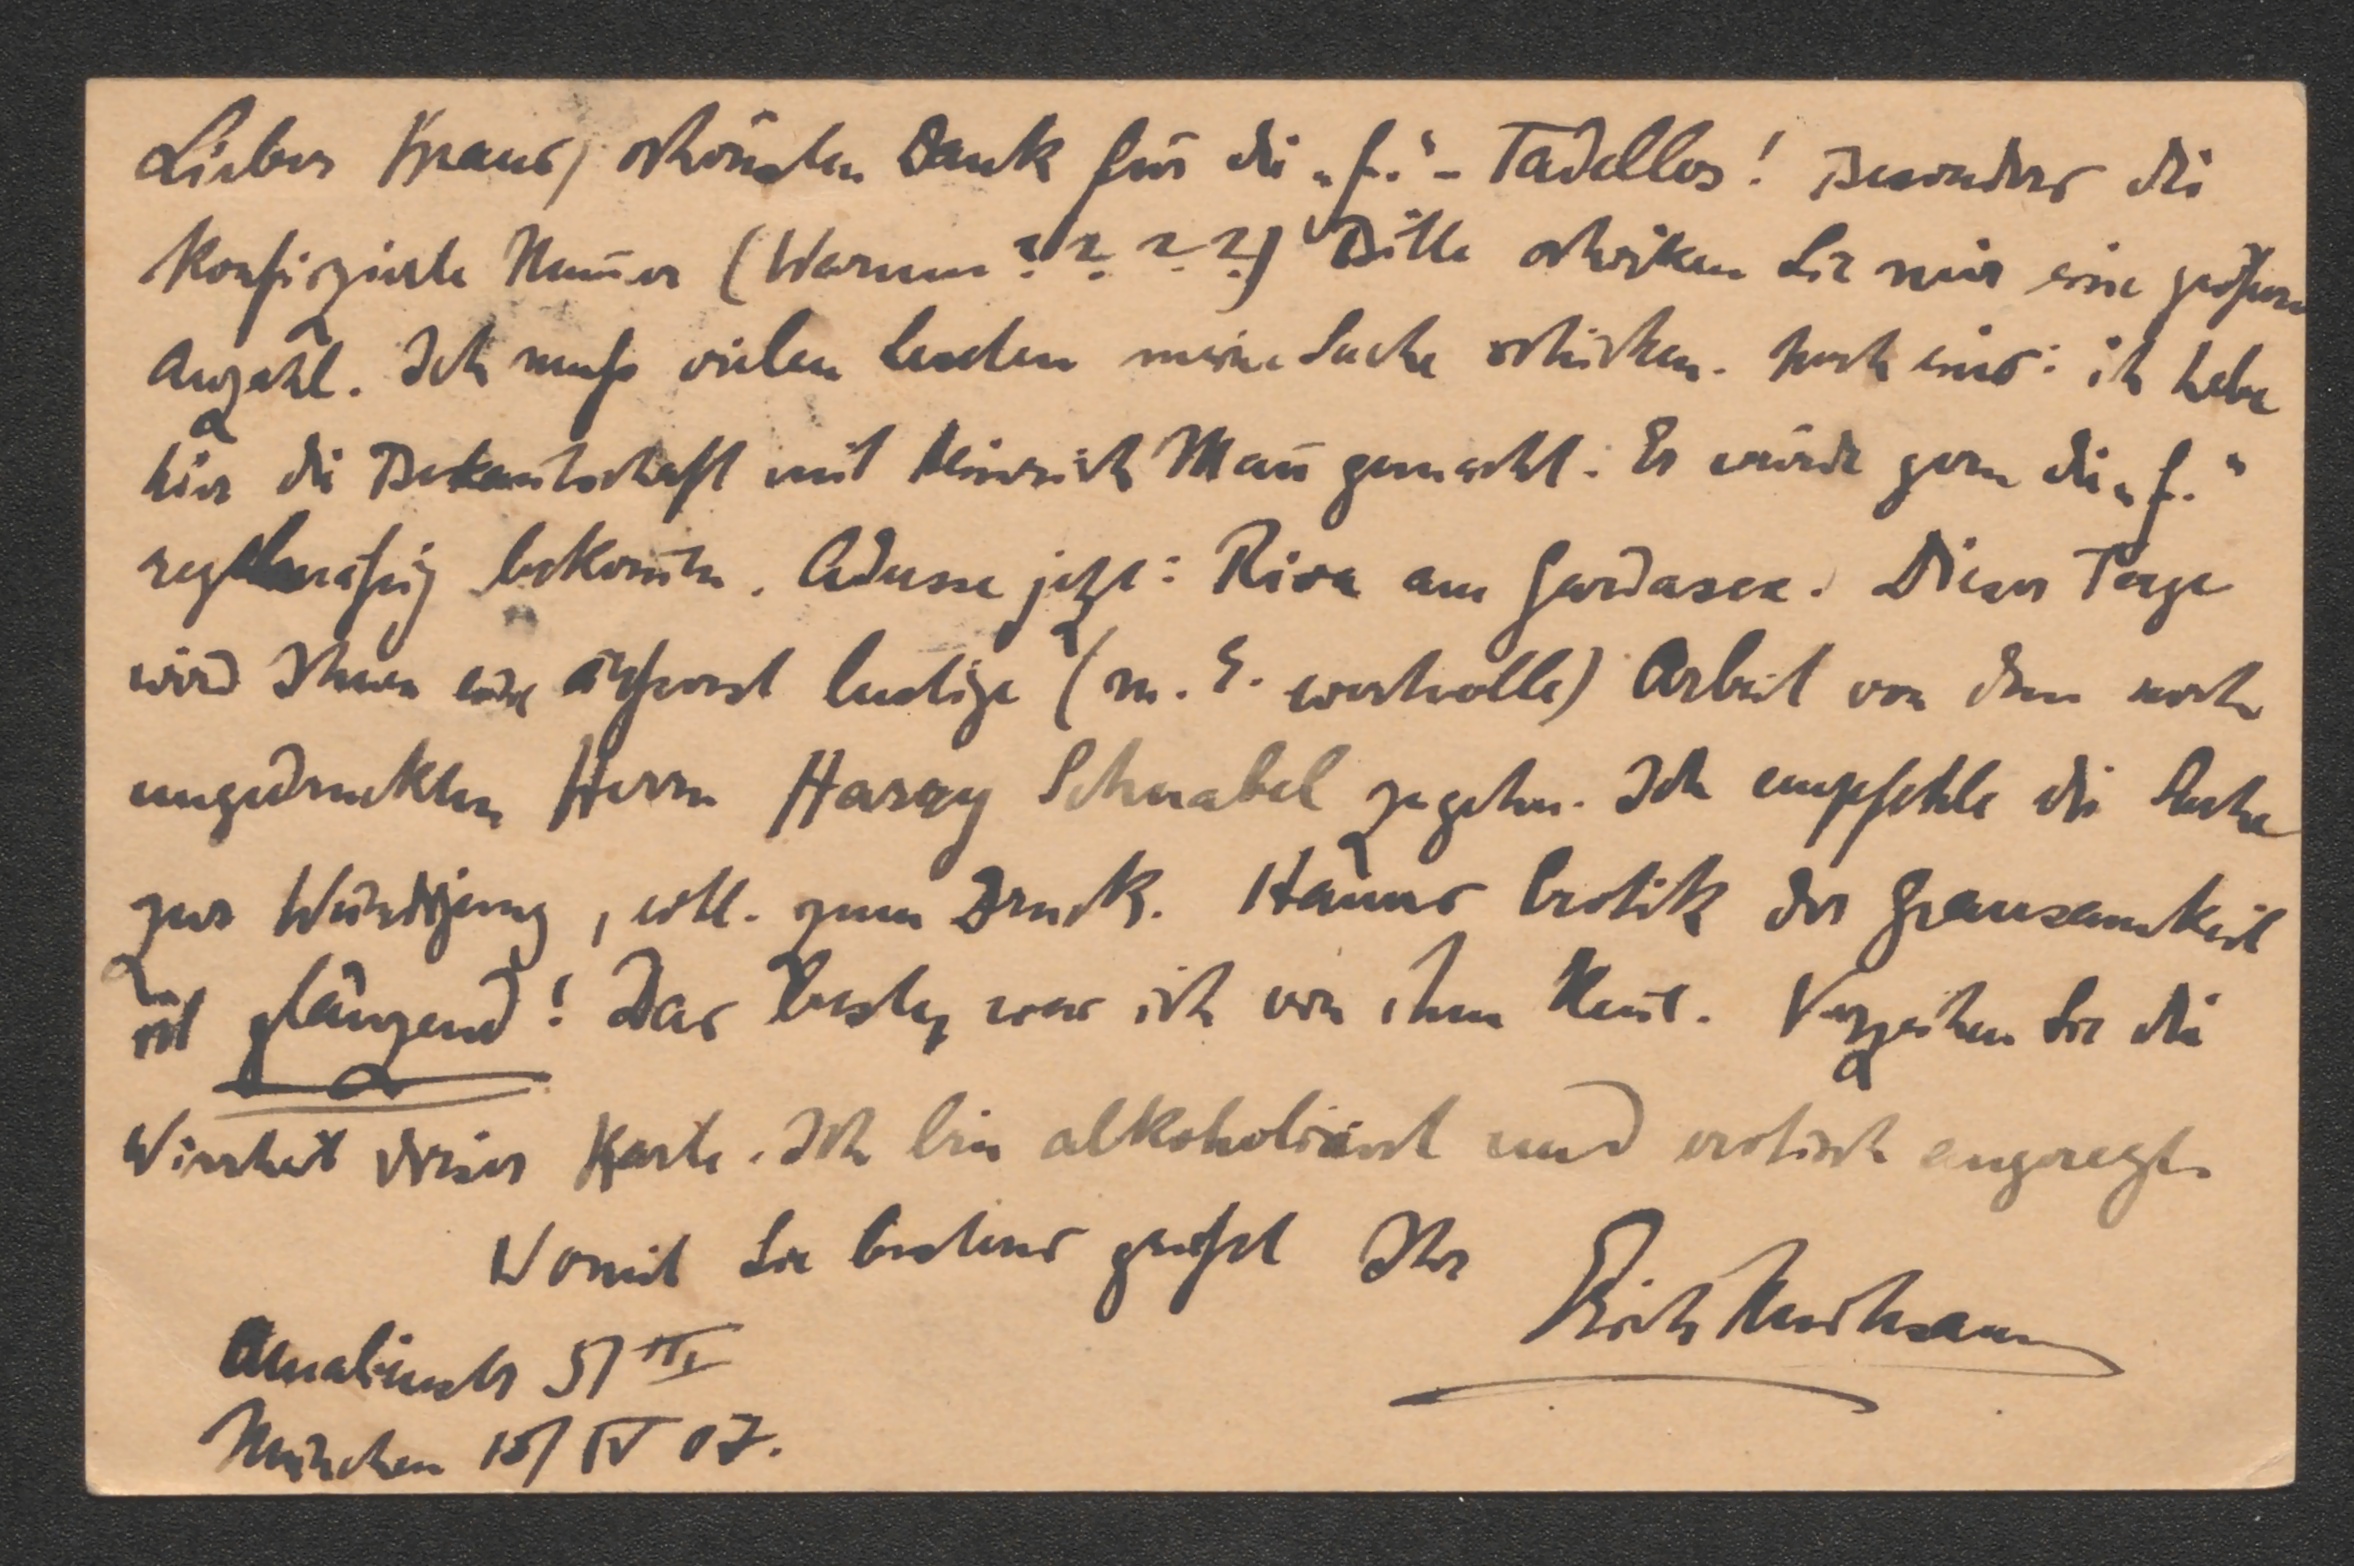 Lieber Kraus, schönsten Dank für die „f." – Tadellos! Besonders die
konfiszierte Num̄er (Warum ? ? ? ?) Bitte schicken Sie mir eine größere
Anzahl. Ich muß vielen Leuten meine Sache schicken. Noch eins: ich habe
hier die Bekantschaft mit Heinrich Man̄ gemacht. Er würde gern die „f."
regelmäßig bekom̄en. Adresse jetzt: Riva am Gardasee. Dieser Tage
wird Ihnen eine äußerst lustige (m. E. wertvolle) Arbeit von dem noch
ungedruckten Herrn Harry Schnabel zugehn. Ich empfehle die Sache
zur Würdigung, evtl. zum Druck. Hauers Erotik der Grausamkeit
ist glänzend! Das beste, was ich von ihm ken̄e. Verzeihen Sie die
Wirrheit dieser Karte. Ich bin alkoholisiert und erotisch angeregt.
Womit Sie bestens grüßt Ihr
Erich Mühsam
Amalienstr 51 III
München 18/IV 07.